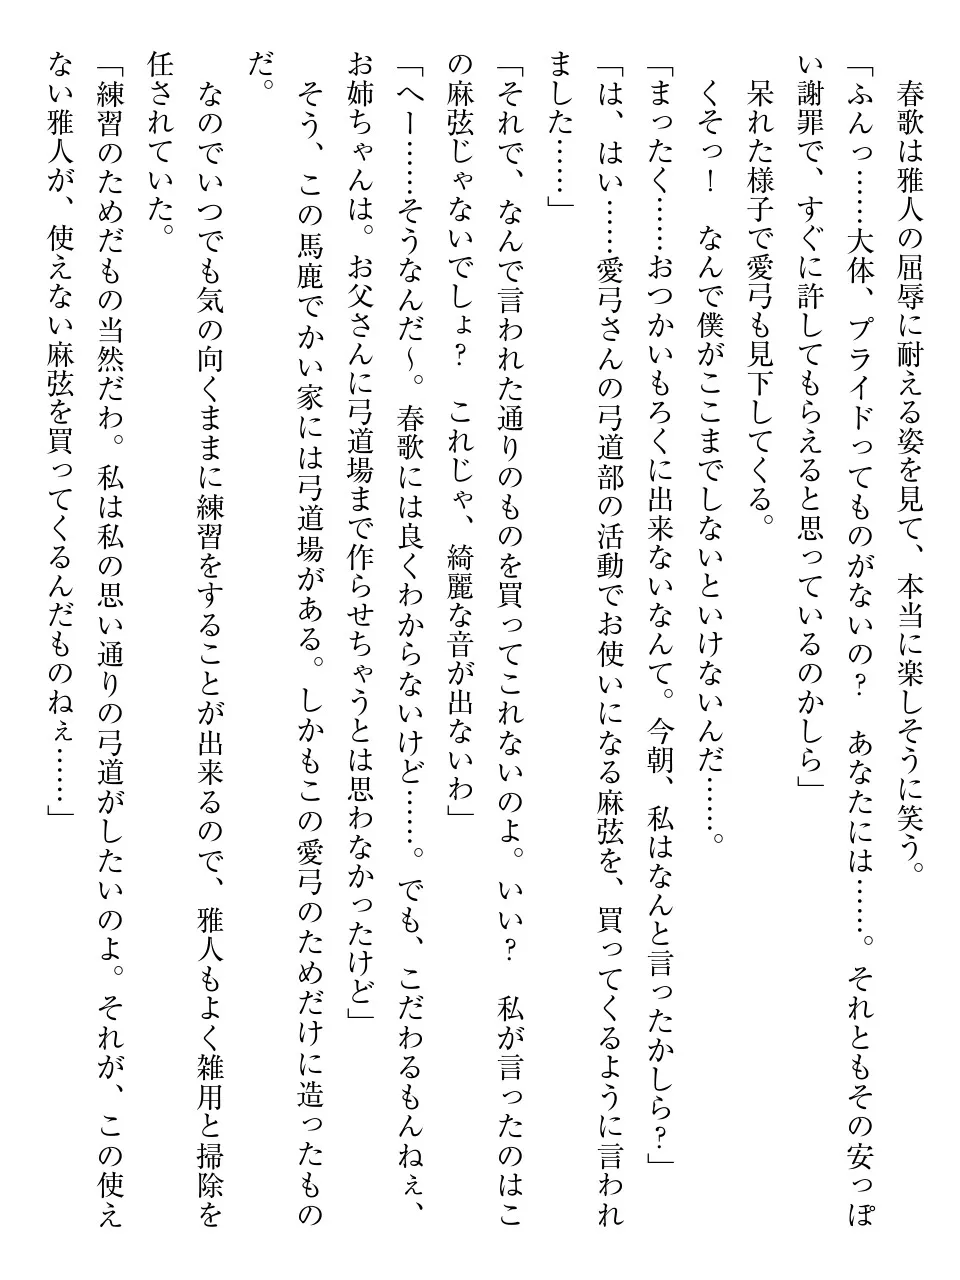 春歌は雅人の屈辱に耐える姿を見て、本当に楽しそうに笑う。
「ふんっ……大体、プライドってものがないの？　あなたには……。それともその安っぽ
い謝罪で、すぐに許してもらえると思っているのかしら」
　呆れた様子で愛弓も見下してくる。
　くそっ！　なんで僕がここまでしないといけないんだ……。
「まったく……おつかいもろくに出来ないなんて。今朝、私はなんと言ったかしら？」
「は、はい……愛弓さんの弓道部の活動でお使いになる麻弦を、買ってくるように言われ
ました……」
「それで、なんで言われた通りのものを買ってこれないのよ。いい？　私が言ったのはこ
の麻弦じゃないでしょ？　これじゃ、綺麗な音が出ないわ」
「へー……そうなんだ～。春歌には良くわからないけど……。でも、こだわるもんねぇ、
お姉ちゃんは。お父さんに弓道場まで作らせちゃうとは思わなかったけど」
　そう、この馬鹿でかい家には弓道場がある。しかもこの愛弓のためだけに造ったもの
だ。
　なのでいつでも気の向くままに練習をすることが出来るので、雅人もよく雑用と掃除を
任されていた。
「練習のためだもの当然だわ。私は私の思い通りの弓道がしたいのよ。それが、この使え
ない雅人が、使えない麻弦を買ってくるんだものねぇ……」